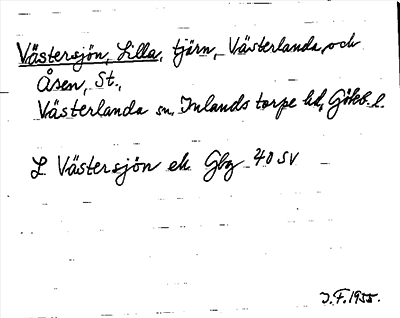 Västersjön, Lilla, tjärn, Västerlanda, och
Åsen, St.,
Västerlanda sn, Inlands torpe hd, Gbkb. l.
L Västersjön ek Gbg 40 SV
J.F. 1955.